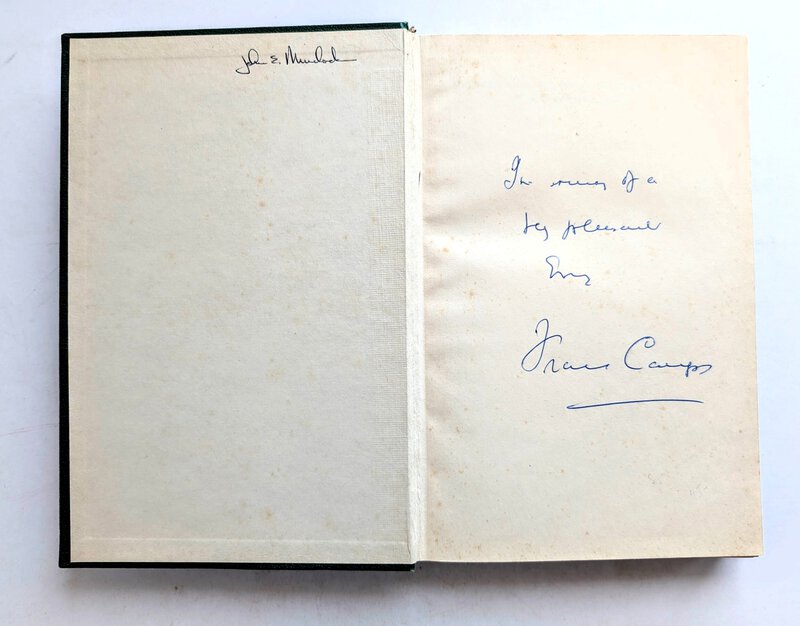 John E. Murdoch
In memory of a
very pleasant
Evening
Francis Camps